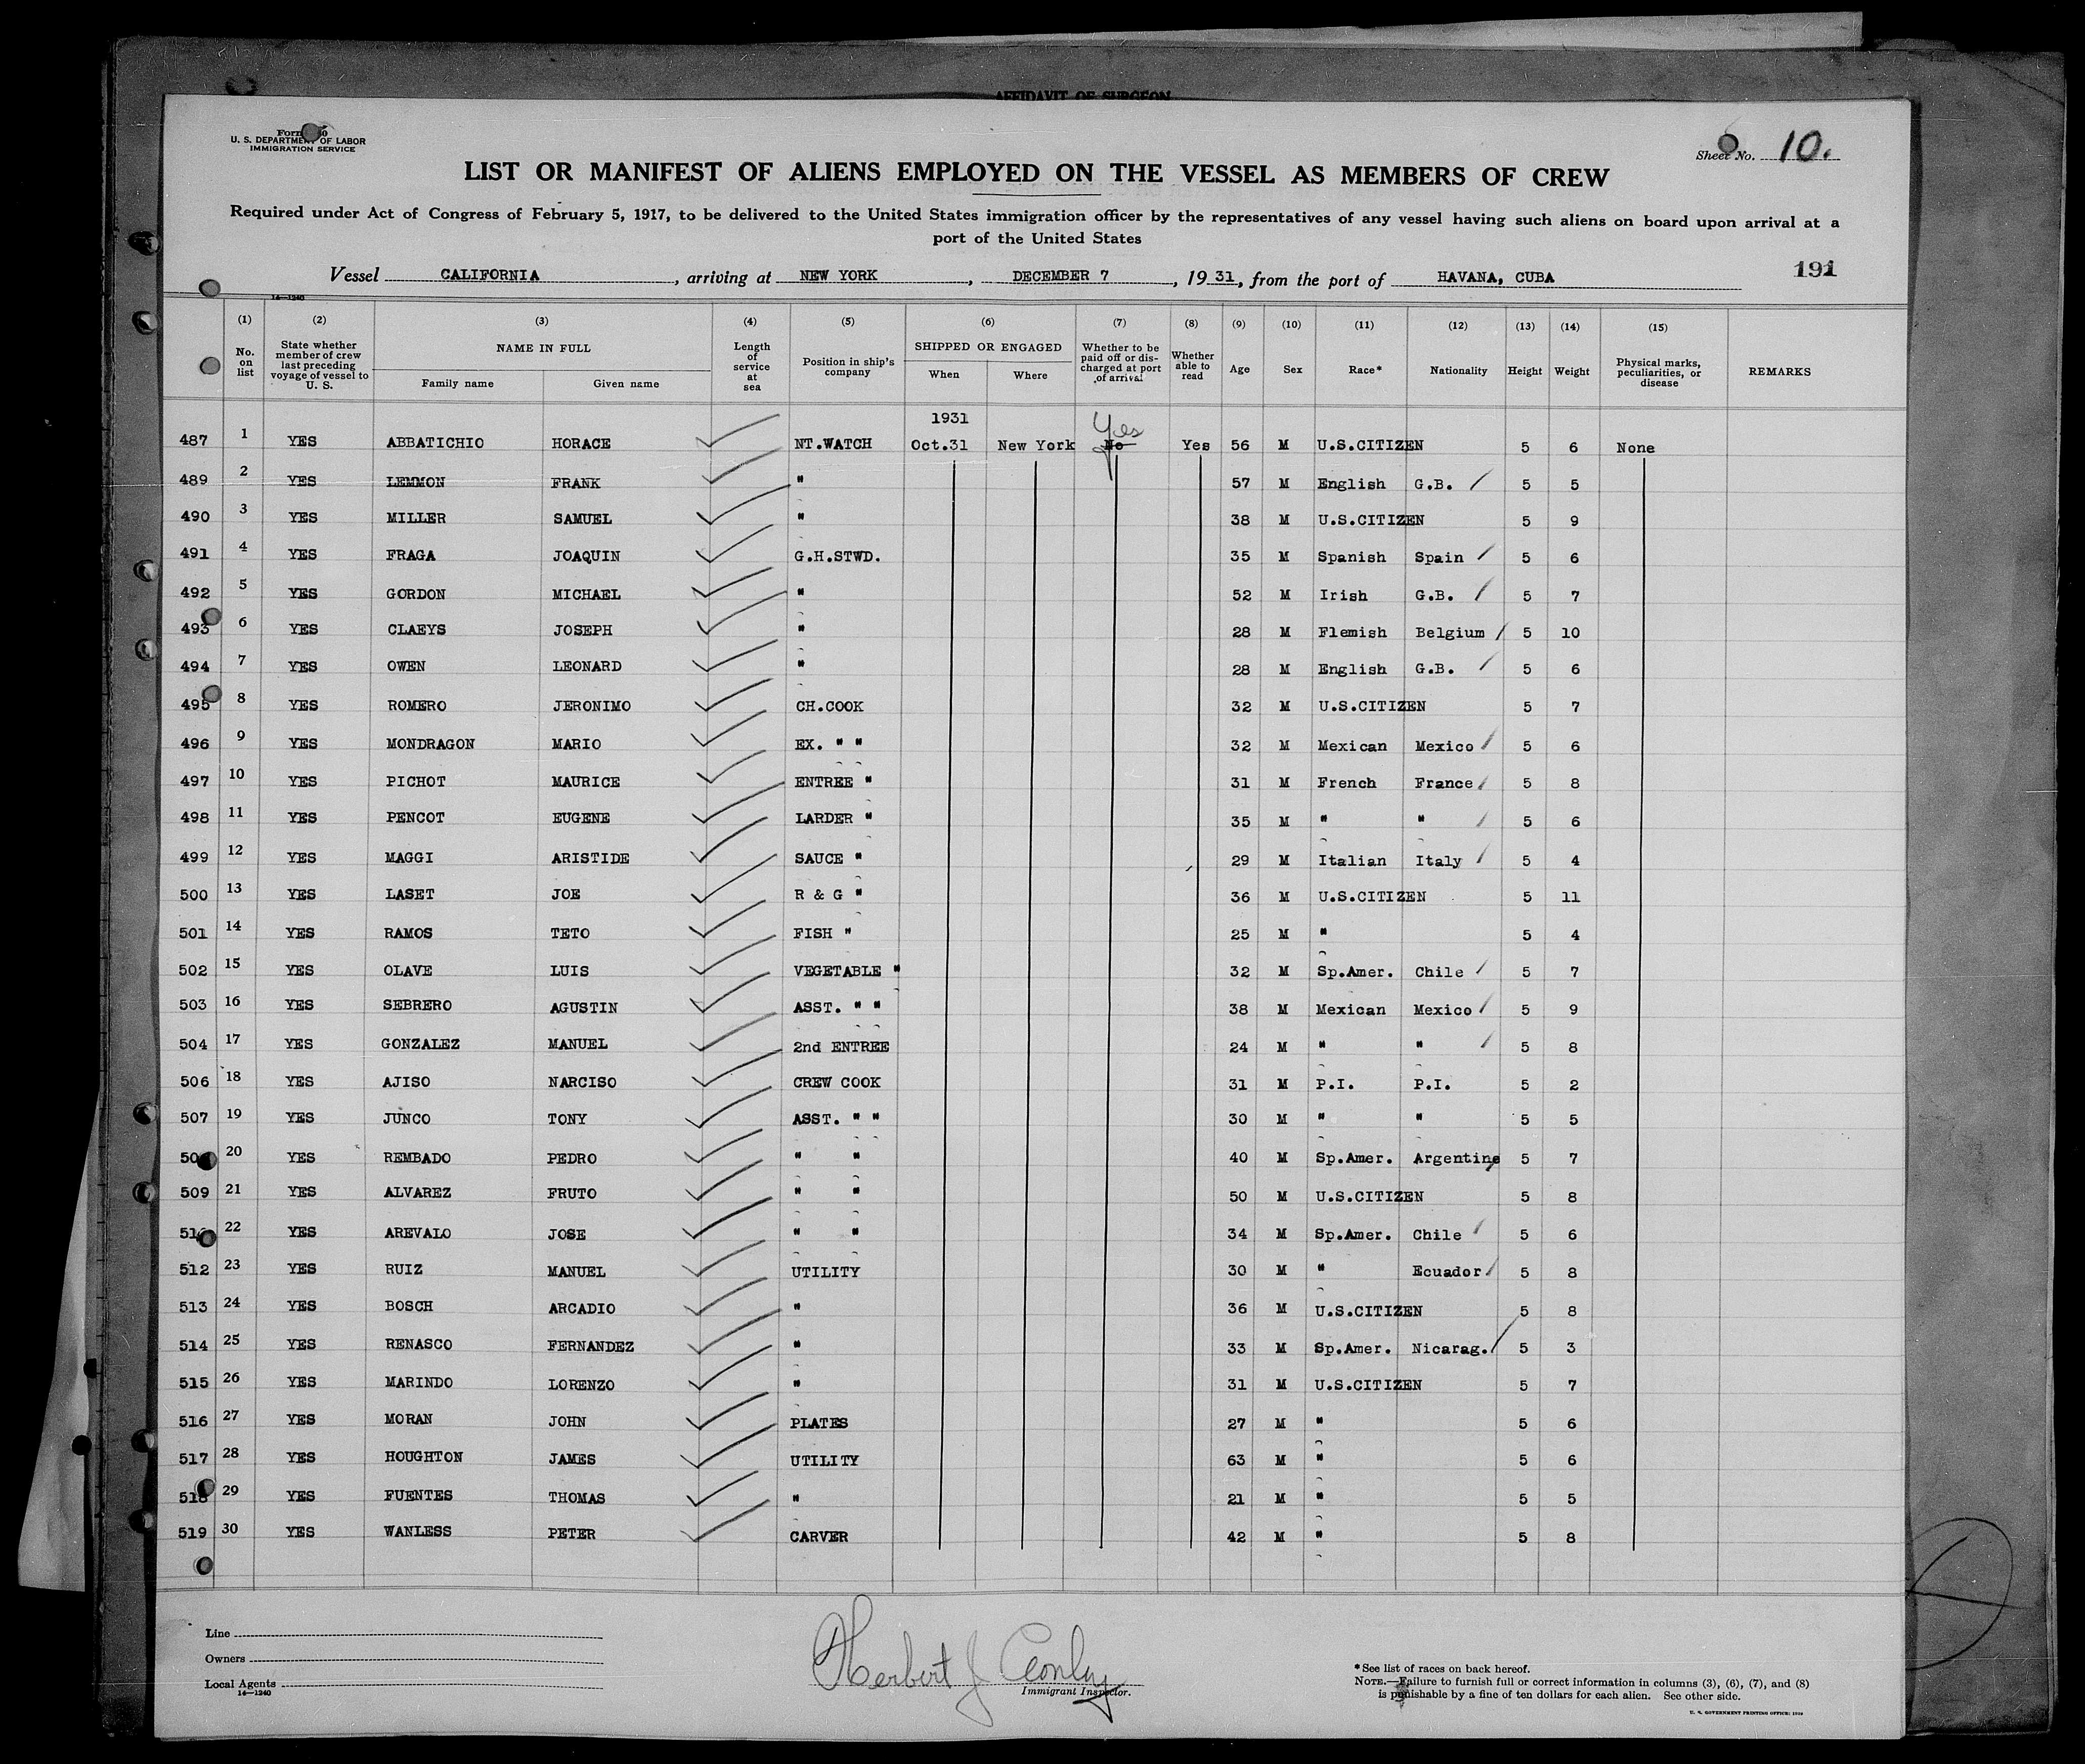 AFFIDAVIT OF SURGEON
Form
U. S. DEPARTMENT OF LABOR
IMMIGRATION SERVICE
Sheet No. 10.
LIST OR MANIFEST OF ALIENS EMPLOYED ON THE VESSEL AS MEMBERS OF CREW
Required under Act of Congress of February 5, 1917, to be delivered to the United States immigration officer by the representatives of any vessel having such aliens on board upon arrival at a
port of the United States
Vessel CALIFORNIA, arriving at NEW YORK, DECEMBER 7, 1931, from the port of HAVANA, CUBA 191
14—1240
(1) (2) (3) (4) (5) (6) (7) (8) (9) (10) (11) (12) (13) (14) (15)
No. on list State whether member of crew last preceding voyage of vessel to U. S. NAME IN FULL Family name Given name Length of service at sea Position in ship's company SHIPPED OR ENGAGED When Where Whether to be paid off or discharged at port of arrival Whether able to read Age Sex Race* Nationality Height Weight Physical marks, peculiarities, or disease REMARKS
1931 Yes
487 1 YES ABBATICHIO HORACE NT.WATCH Oct.31 New York No Yes 56 M U.S.CITIZEN 5 6 None
489 2 YES LEMMON FRANK " 57 M English G.B. 5 5
490 3 YES MILLER SAMUEL " 38 M U.S.CITIZEN 5 9
491 4 YES FRAGA JOAQUIN G.H.STWD. 35 M Spanish Spain 5 6
492 5 YES GORDON MICHAEL " 52 M Irish G.B. 5 7
493 6 YES CLAEYS JOSEPH " 28 M Flemish Belgium 5 10
494 7 YES OWEN LEONARD " 28 M English G.B. 5 6
495 8 YES ROMERO JERONIMO CH.COOK 32 M U.S.CITIZEN 5 7
496 9 YES MONDRAGON MARIO EX. " " 32 M Mexican Mexico 5 6
497 10 YES PICHOT MAURICE ENTREE " 31 M French France 5 8
498 11 YES PENCOT EUGENE LARDER " 35 M " " 5 6
499 12 YES MAGGI ARISTIDE SAUCE " 29 M Italian Italy 5 4
500 13 YES LASET JOE R & G " 36 M U.S.CITIZEN 5 11
501 14 YES RAMOS TETO FISH " 25 M " 5 4
502 15 YES OLAVE LUIS VEGETABLE " 32 M Sp.Amer. Chile 5 7
503 16 YES SEBRERO AGUSTIN ASST. " " 38 M Mexican Mexico 5 9
504 17 YES GONZALEZ MANUEL 2nd ENTREE 24 M " " 5 8
506 18 YES AJISO NARCISO CREW COOK 31 M P.I. P.I. 5 2
507 19 YES JUNCO TONY ASST. " " 30 M " " 5 5
20 YES REMBADO PEDRO " " 40 M Sp.Amer. Argentine 5 7
509 21 YES ALVAREZ FRUTO " " 50 M U.S.CITIZEN 5 8
22 YES AREVALO JOSE " " 34 M Sp.Amer. Chile 5 6
512 23 YES RUIZ MANUEL UTILITY 30 M " Ecuador 5 8
513 24 YES BOSCH ARCADIO " 36 M U.S.CITIZEN 5 8
514 25 YES RENASCO FERNANDEZ " 33 M Sp.Amer. Nicarag. 5 3
515 26 YES MARINDO LORENZO " 31 M U.S.CITIZEN 5 7
516 27 YES MORAN JOHN PLATES 27 M " 5 6
517 28 YES HOUGHTON JAMES UTILITY 63 M " 5 6
518 29 YES FUENTES THOMAS " 21 M " 5 5
519 30 YES WANLESS PETER CARVER 42 M " 5 8
Line
Owners
Local Agents
14—1240
Herbert J Conley
Immigrant Inspector.
*See list of races on back hereof.
NOTE.—Failure to furnish full or correct information in columns (3), (6), (7), and (8)
is punishable by a fine of ten dollars for each alien. See other side.
U. S. GOVERNMENT PRINTING OFFICE: